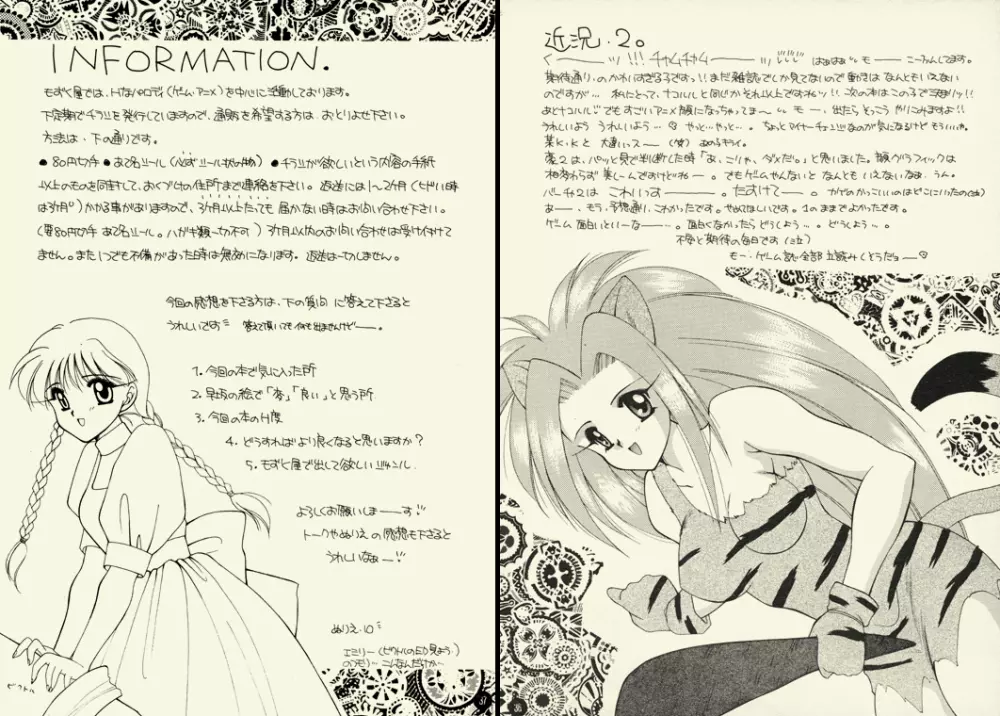 INFORMATION.
もずく屋では、Hなパロディ(ゲーム・アニメ)を中心に活動しております。
不定期でチラシを発行していますので、通販を希望する方は、おとりよせ下さい。
方法は、下の通りです。
●80円切手 ●あて名シール(必ずシール状の物) ●チラシが欲しいという内容の手紙
以上のものを同封して、おくづけの住所まで連絡を下さい。返送には1〜2か月(ひどい時
は3か月)かかる事がありますので、3か月以上たっても届かない時はお伺い合わせ下さい。
(要80円切手 あて名シール。ハガキ類一切不可) 3か月以内のお問い合わせは受け付けて
ません。また いつでも不備があった時は無効になります。返送は一切しません。
今回の感想を下さる方は、下の質問に答えて下さると
うれしいです 答えて頂いても何も出ませんけどー。
1. 今回の本で気に入った所
2. 早坂の絵で「変」「良い」と思う所
3. 今回の本のH度
4. どうすればより良くなると思いますか?
5. もずく屋で出して欲しいジャンル.
よろしくお願いしまーーす!!
トークやぬりえの感想も下さると
うれしいなぁー!!
ぬりえ.10
エミリー(ビクトルのED見よう.)
のつもり… こんなんだけか〜
ビクトル
51
近況.2。
く〜〜ッ!!! チャムチャム〜〜ッ はぁはぁ モーーこーふんしてます。
期待通りのかわいすぎる子ですっ!! まだ雑誌でしか見てないので動きはなんともいえない
のですが… 私にとって、ナコルルと同じかそれ以上ですねッ!! 次の本はこの子で決まりッ!!
あとナコルルでもすごいアニメ顔になっちゃってまー モー、出たらそっこうやりこみますよ!!
うれしいよう うれしいよう… やっと…やっと…。 ちょっとマイナーチェンジなのが気になるけどもういいや。
某K.Kと大違いスー(笑)あのキライ。
変2は、パッと見で判断した時「あ、こりゃ、ダメだ。」と思いました。顔グラフィックは
相変わらず美しーんですけどねー。でもゲームやんないとなんともいえないなぁ.うん。
バーチャ2は こわいっすーーー。たすけてー。 カゲのかっこいいのはどこにいったの(泣)
あー、モラ、予想通り、こわかったです。やめてほしいです。1のままでよかったです。
ゲーム面白いといーなー…。面白くなかったらどうしよう…。どうしよう…。
不安と期待の毎日です(泣)
モー、ゲーム誌全部立読みしとうだョー